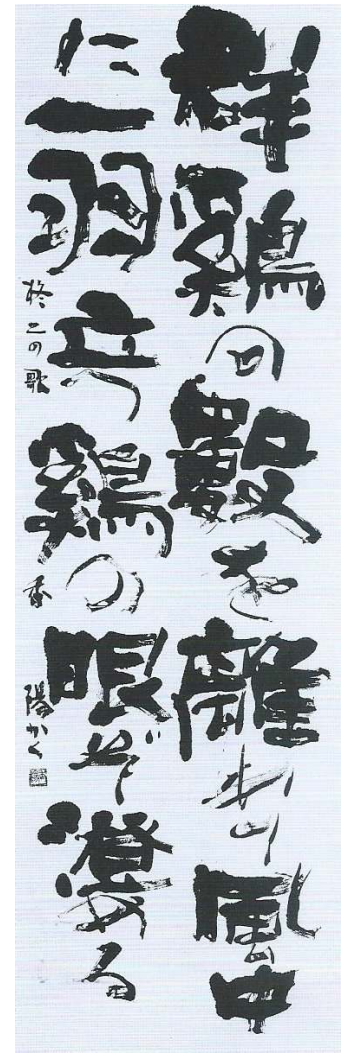 群鷄の數を離れて風中
に一羽立つ鷄の眼ぞ澄める
柊二の歌 陽かく